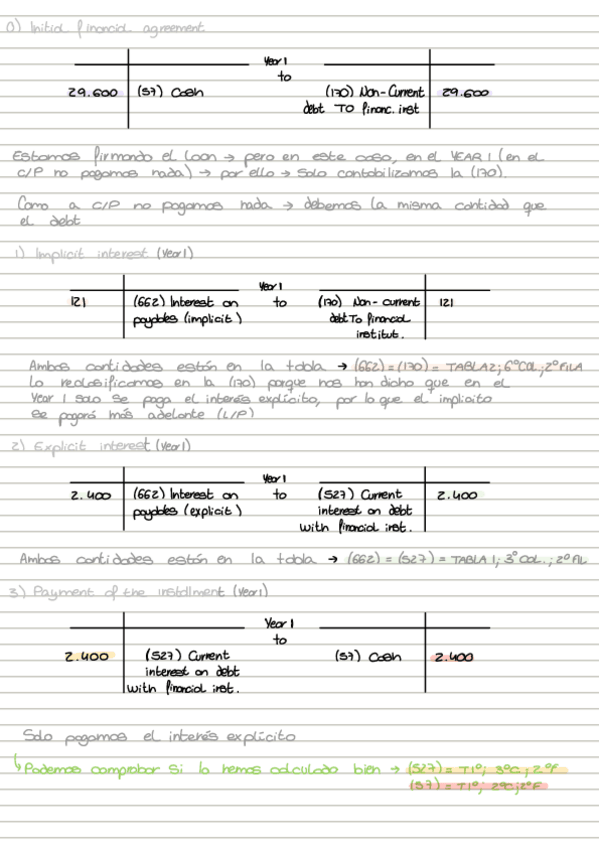 0) Initial financial agreement
Year 1
to
29.600 (57) Cash (170) Non-Current 29.600
debt TO financ. inst
Estamos firmando el loan → pero en este caso, en el YEAR 1 (en el
C/P no pagamos nada) → por ello → Solo contabilizamos la (170).
Como a C/P no pagamos nada → debemos la misma cantidad que
el debt
1) Implicit interest (Year 1)
Year 1
121 (662) Interest on to (170) Non-current 121
payables (implicit) debt To financial
institut.
Ambas cantidades están en la tabla → (662) = (170) = TABLA 2; 6º COL; 2º FILA
Lo reclasificamos en la (170) porque nos han dicho que en el
Year 1 solo se paga el interés explícito, por lo que el implicito
se pagará más adelante (L/P)
2) Explicit interest (Year 1)
Year 1
2.400 (662) Interest on to (527) Current 2.400
payables (explicit) interest on debt
with financial inst.
Ambas cantidades están en la tabla → (662) = (527) = TABLA 1; 3º COL.; 2º FIL
3) Payment of the installment (Year 1)
Year 1
to
2.400 (527) Current (57) Cash 2.400
interest on debt
with financial inst.
Solo pagamos el interés explícito
↳ Podemos comprobar si lo hemos calculado bien → (527) = T1º; 3ºC; 2ºF
(57) = T1º; 2ºC; 2ºF